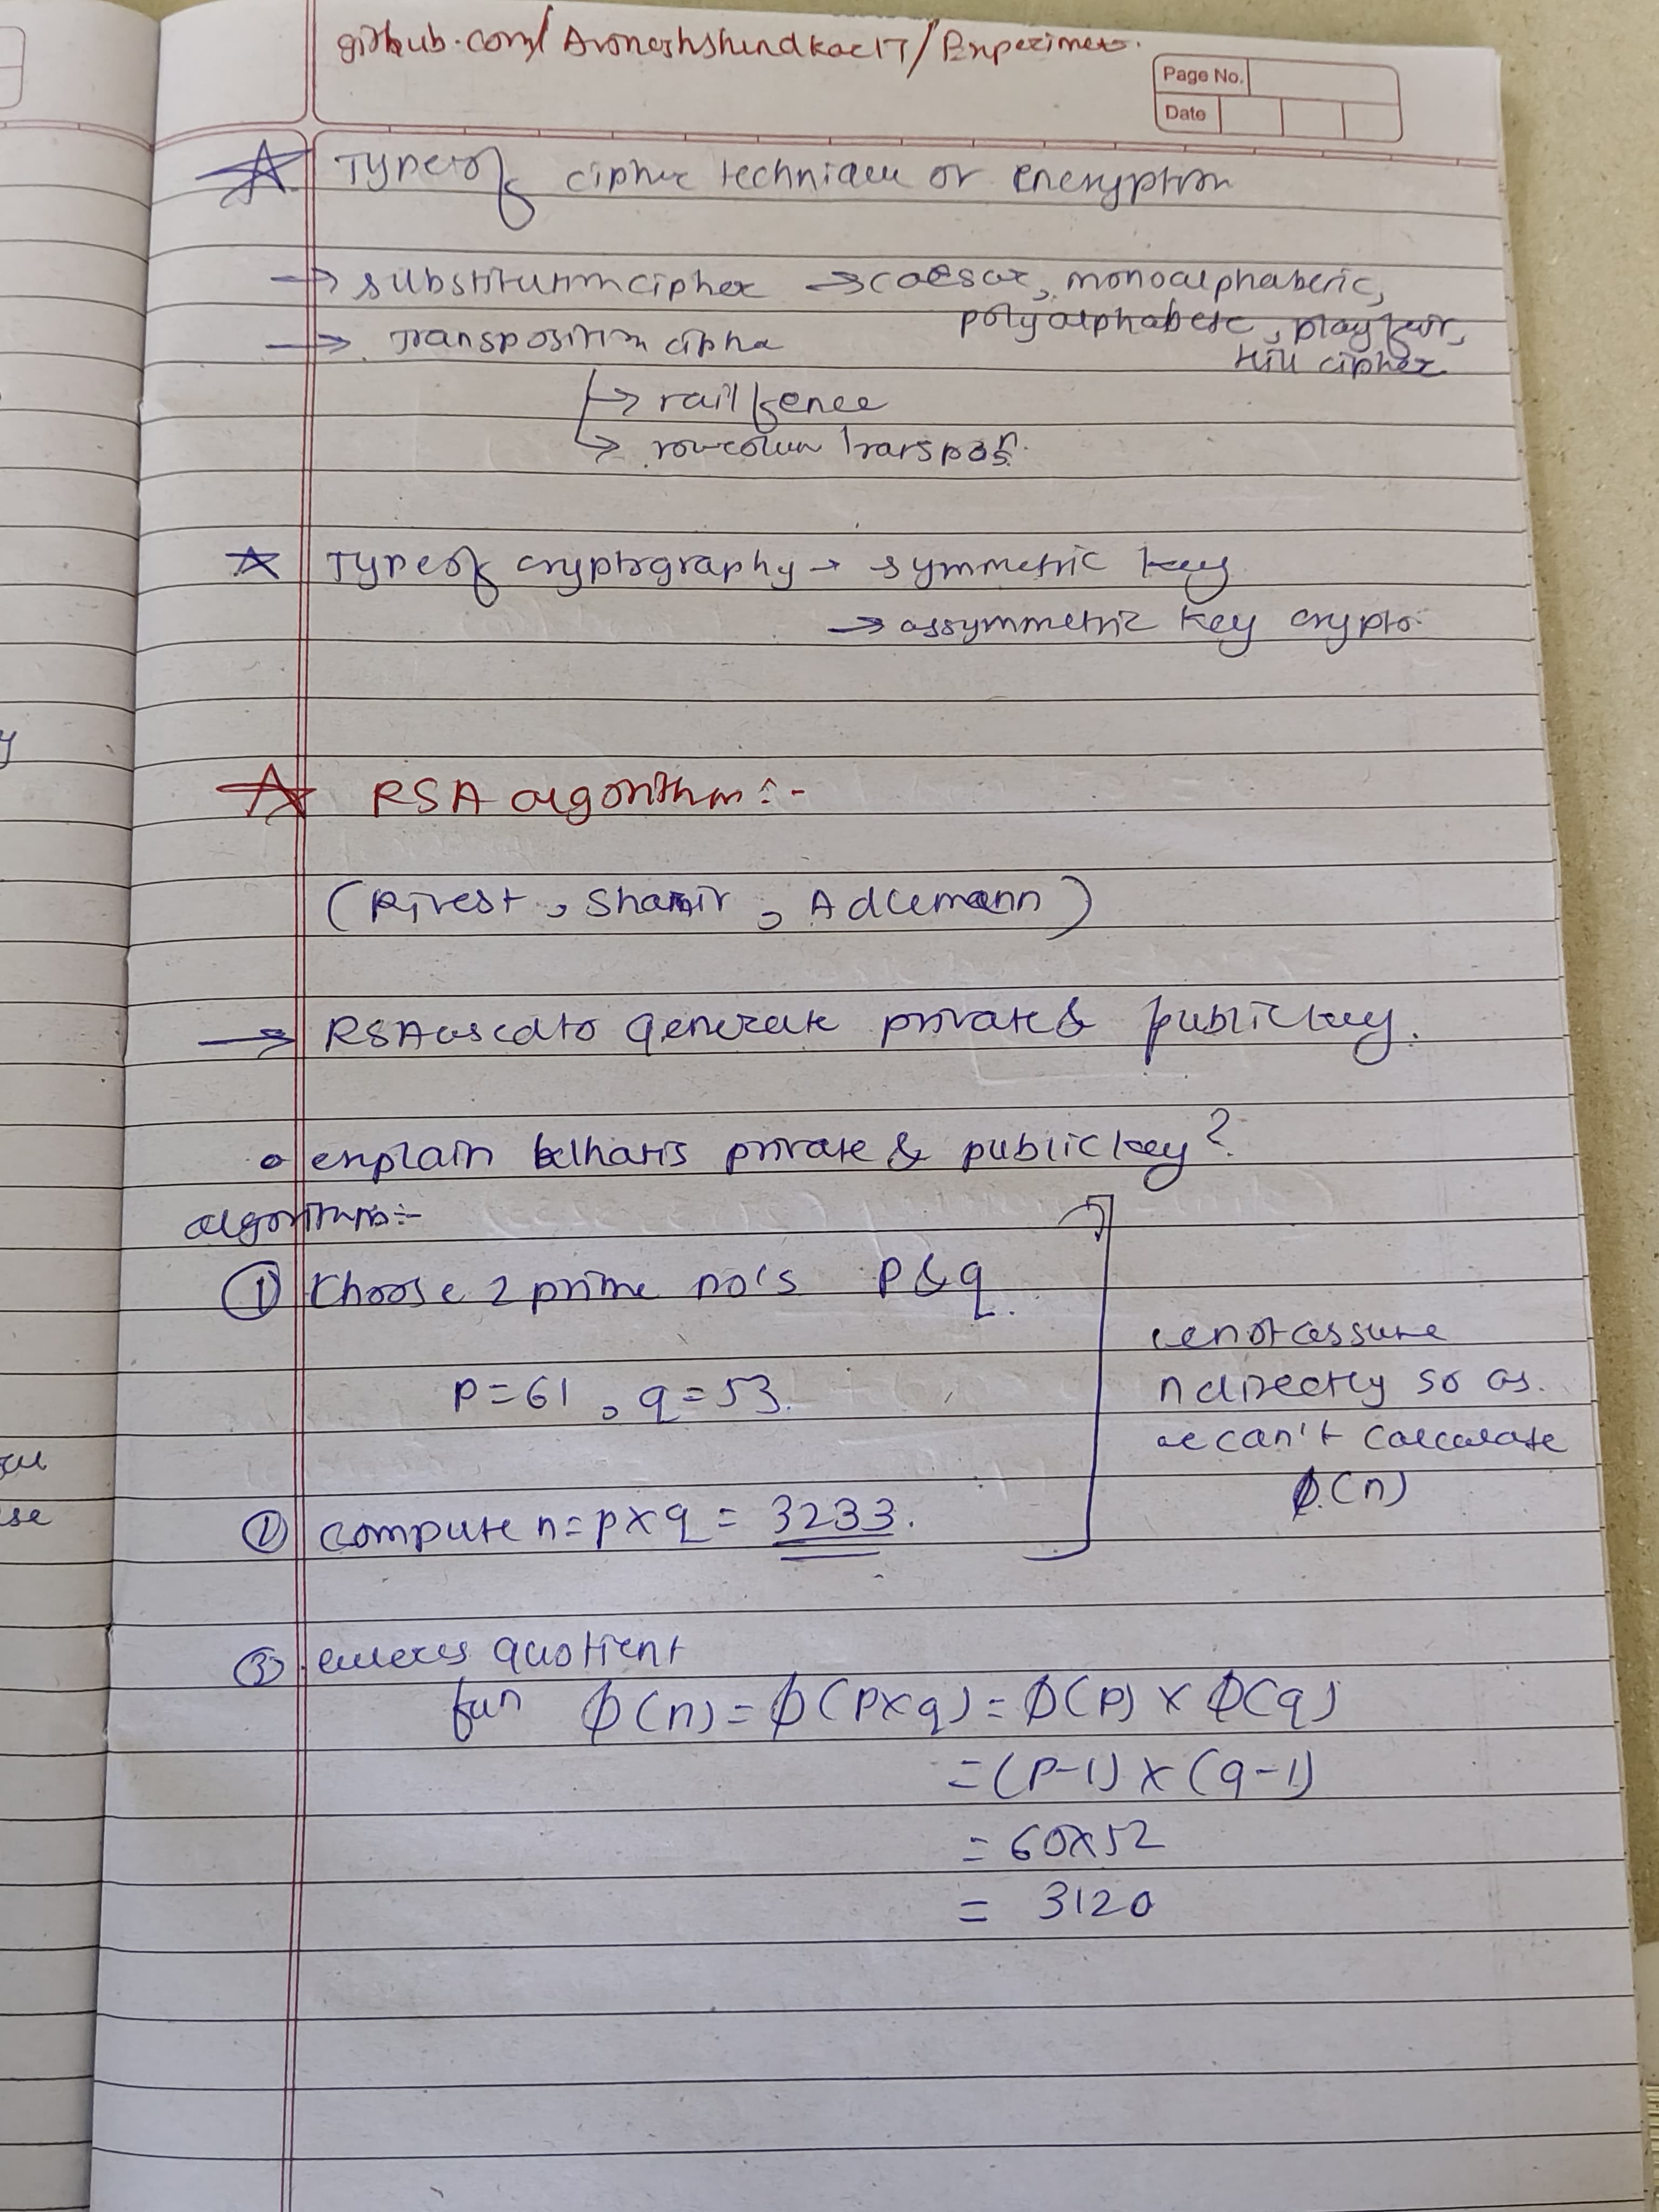 github.com/Avaneshshendkar17/Experiments.
Page No.
Date
Types of cipher technique or encryption
→ substitution cipher → caesar, monoalphabetic,
polyalphabetic, playfair,
Hill cipher
→ Transposition cipher
→ rail fence
→ row column transposn.
Type of cryptography → symmetric key
→ assymmetric key crypto.
RSA algorithm :-
(Rivest, Shamir, Adlemann)
→ RSA used to generate private & public key.
explain what is private & public key?
algorithm:-
① Choose 2 prime no's p & q.
p=61, q=53.
② compute n=p×q = 3233.
we not assume
n directly so as
we can't calculate
ϕ(n)
③ eulers quotient
fun ϕ(n) = ϕ(p×q) = ϕ(p) × ϕ(q)
= (p-1) × (q-1)
= 60×52
= 3120
y
se